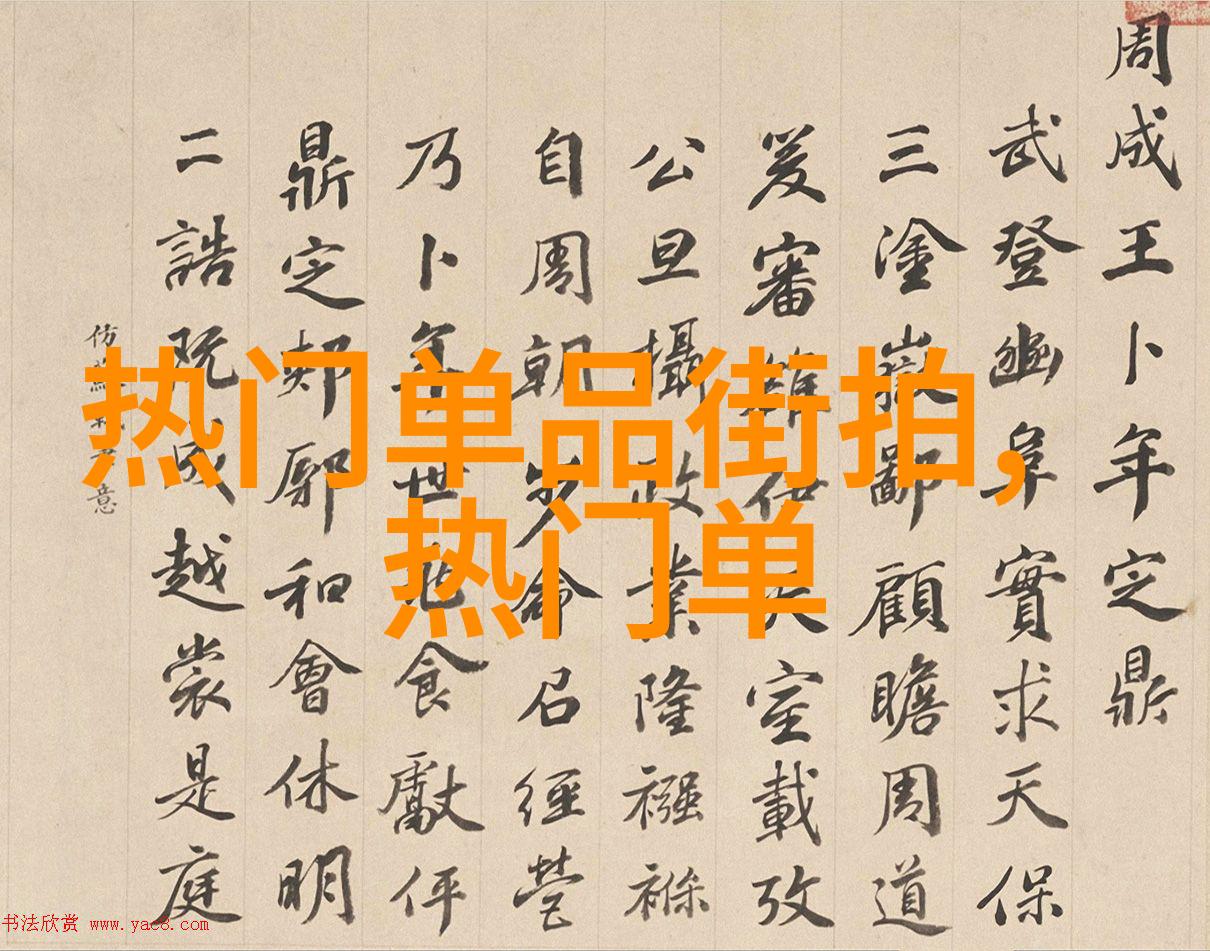 周成王卜年定鼎
武登幽阜實求天保
三塗嶽鄙顧瞻周道
爰審雒伊天室載攷
公旦攝政業隆襁褓
自周朝步命召經營
乃卜年世食獻伻
鼎定郟鄏和會休明
二誥既成越裳是庭
仿意
热门单品街拍,
热门单
书法欣赏 www.yac8.com